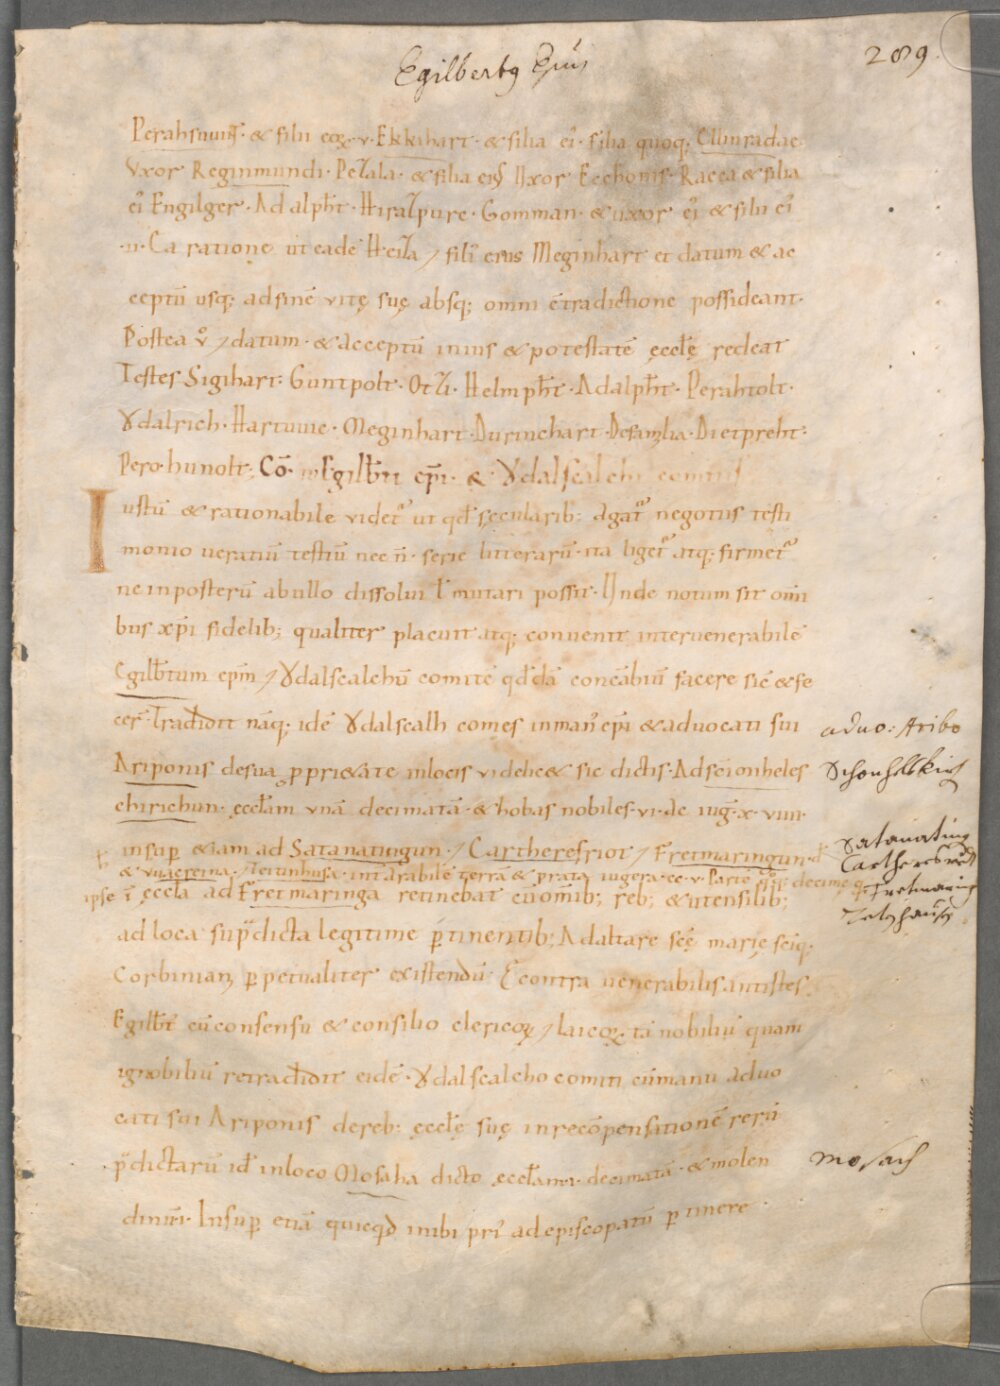 Egilbertꝯ Ep̄us
289.
Perahsuuint̄· & filii eoꝝ·v·Ekkihart· & filia ei᷒· filia quoq; Chunradae·
Vxor Reginmundi· Pezala· & filia eiꝰ Uxor Ecchonis· Racea & filia
ei᷒ Engilger· Adalph̄t· Hiralzpurc· Gomman· & uxor ei᷒ & filii ei᷒
·ii· Ea ratione ut eadē Heiza / fili᷒ eius Meginhart et datum & ac
ceptū usq; ad finē vitę suę absq; omni c̄tradictione possideant·
Postea v̊ / datum· & acceptū in ius & potestatē ęccłę redeat
Testes Sigihart· Guntpolt· Otzi· Helmph̄t· Adalph̄t· Perahtolt·
Ȣdalrich· Hartuuic· Meginhart· Durinchart· De familia· Dietpreht·
Pero· hunolt; Cō· Egilb̄ti ep̄i· & Ȣdalscalchi comitis
Iustū & rationabile videt᷑ ut qđ sęcularib; agat᷑ negotiis testi
monio ueratiū testiū nec n̄· serie litterarū· ita liget᷑ atq; firmet᷑
ne in posterū ab ullo dissolui ł mutari possit· Unde notum sit omī
bus xp̄i fidelib; qualiter placuit atq; conuenit inter uenerabilē
Egilb̄tum ep̄m / Ȣdalscalchū comitē qđdā concābiū facere sic̄ & fe
cer̄· Tradidit nāq; idē Ȣdalscalh comes in man᷒ ep̄i & aduocati sui
Ariponis de sua ꝓprietate in locis videlic& sic dictis· Ad sconheles
chirichun· ęccłam vnā decimatā· & hobas nobiles·vi· de iug̅·x·viiii·
insuꝑ &iam ad Satanatingun· / Cartheresriot / Fretmaringun·
& vuacreina· / Tetinhusa· int̄ arabilē terrā & prata iugera·cc·v· Partē decimę q̄
ipse ī ęccła ad Fretmaringa retinebat cū om̄ib; reb; & utensilib;
ad loca sup̄dicta legitime ꝑtinentib; Ad altare scę̄ marię sciq̄·
Corbiniani ꝑpetualiter existendū· Econtra uenerabilis antistes
Egilb̄t᷒ cū consensu & consilio clericoꝝ / laicoꝝ· tā nobiliū quam
ignobiliū retradidit eidē· Ȣdalscalcho comiti cū manu aduo
cati sui Ariponis de reb; ęccłę suę in recōpensationē rerū
p̄dictarū id̄ in loco Mosaha dicto ęccłam·i· decimatā· & molen
dinū·i· Insuꝑ etiā quicqđ inibi pri᷒ ad episcopatū ꝑtinere
aduo: Aribo
Schonhelskirch
Satanating
Carthersriedt
Fretmaring
Tetzhausen
Mosach